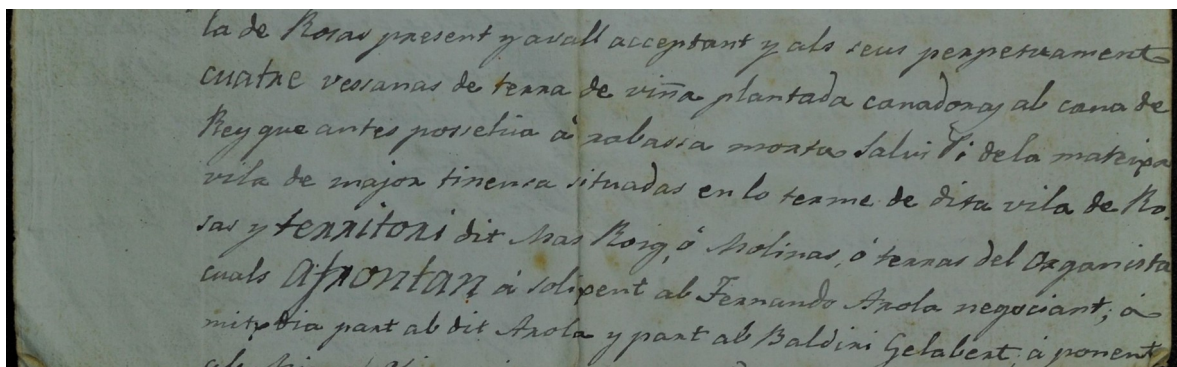 la de Rosas present y avall acceptant y als seus perpetuament
cuatre vessanas de terra de viña plantada canadoras ab cana de
Rey que antes possehia á rabassa morta Salvi Pi dela mateixa
vila de major tinensa situadas en lo terme de dita vila de Ro-
sas y territori dit Mas Roig, ó Molinas, ó terras del Organista
cuals afrontan á solixent ab Fernando Arola negociant; á
mitxdia part ab dit Arola y part ab Baldiri Gelabert; á ponent